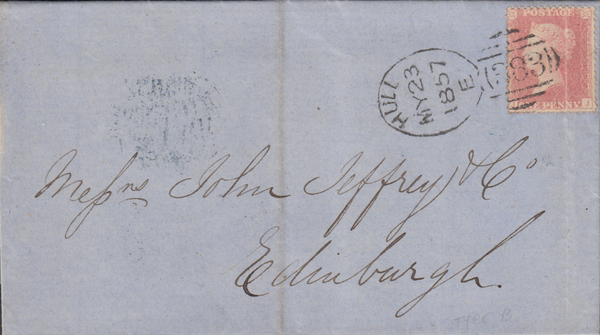 POSTAGE
383
PENNY
J
HULL
MY 23
1857
E
Messrs John Jeffrey & Co
Edinburgh.
TYPE B